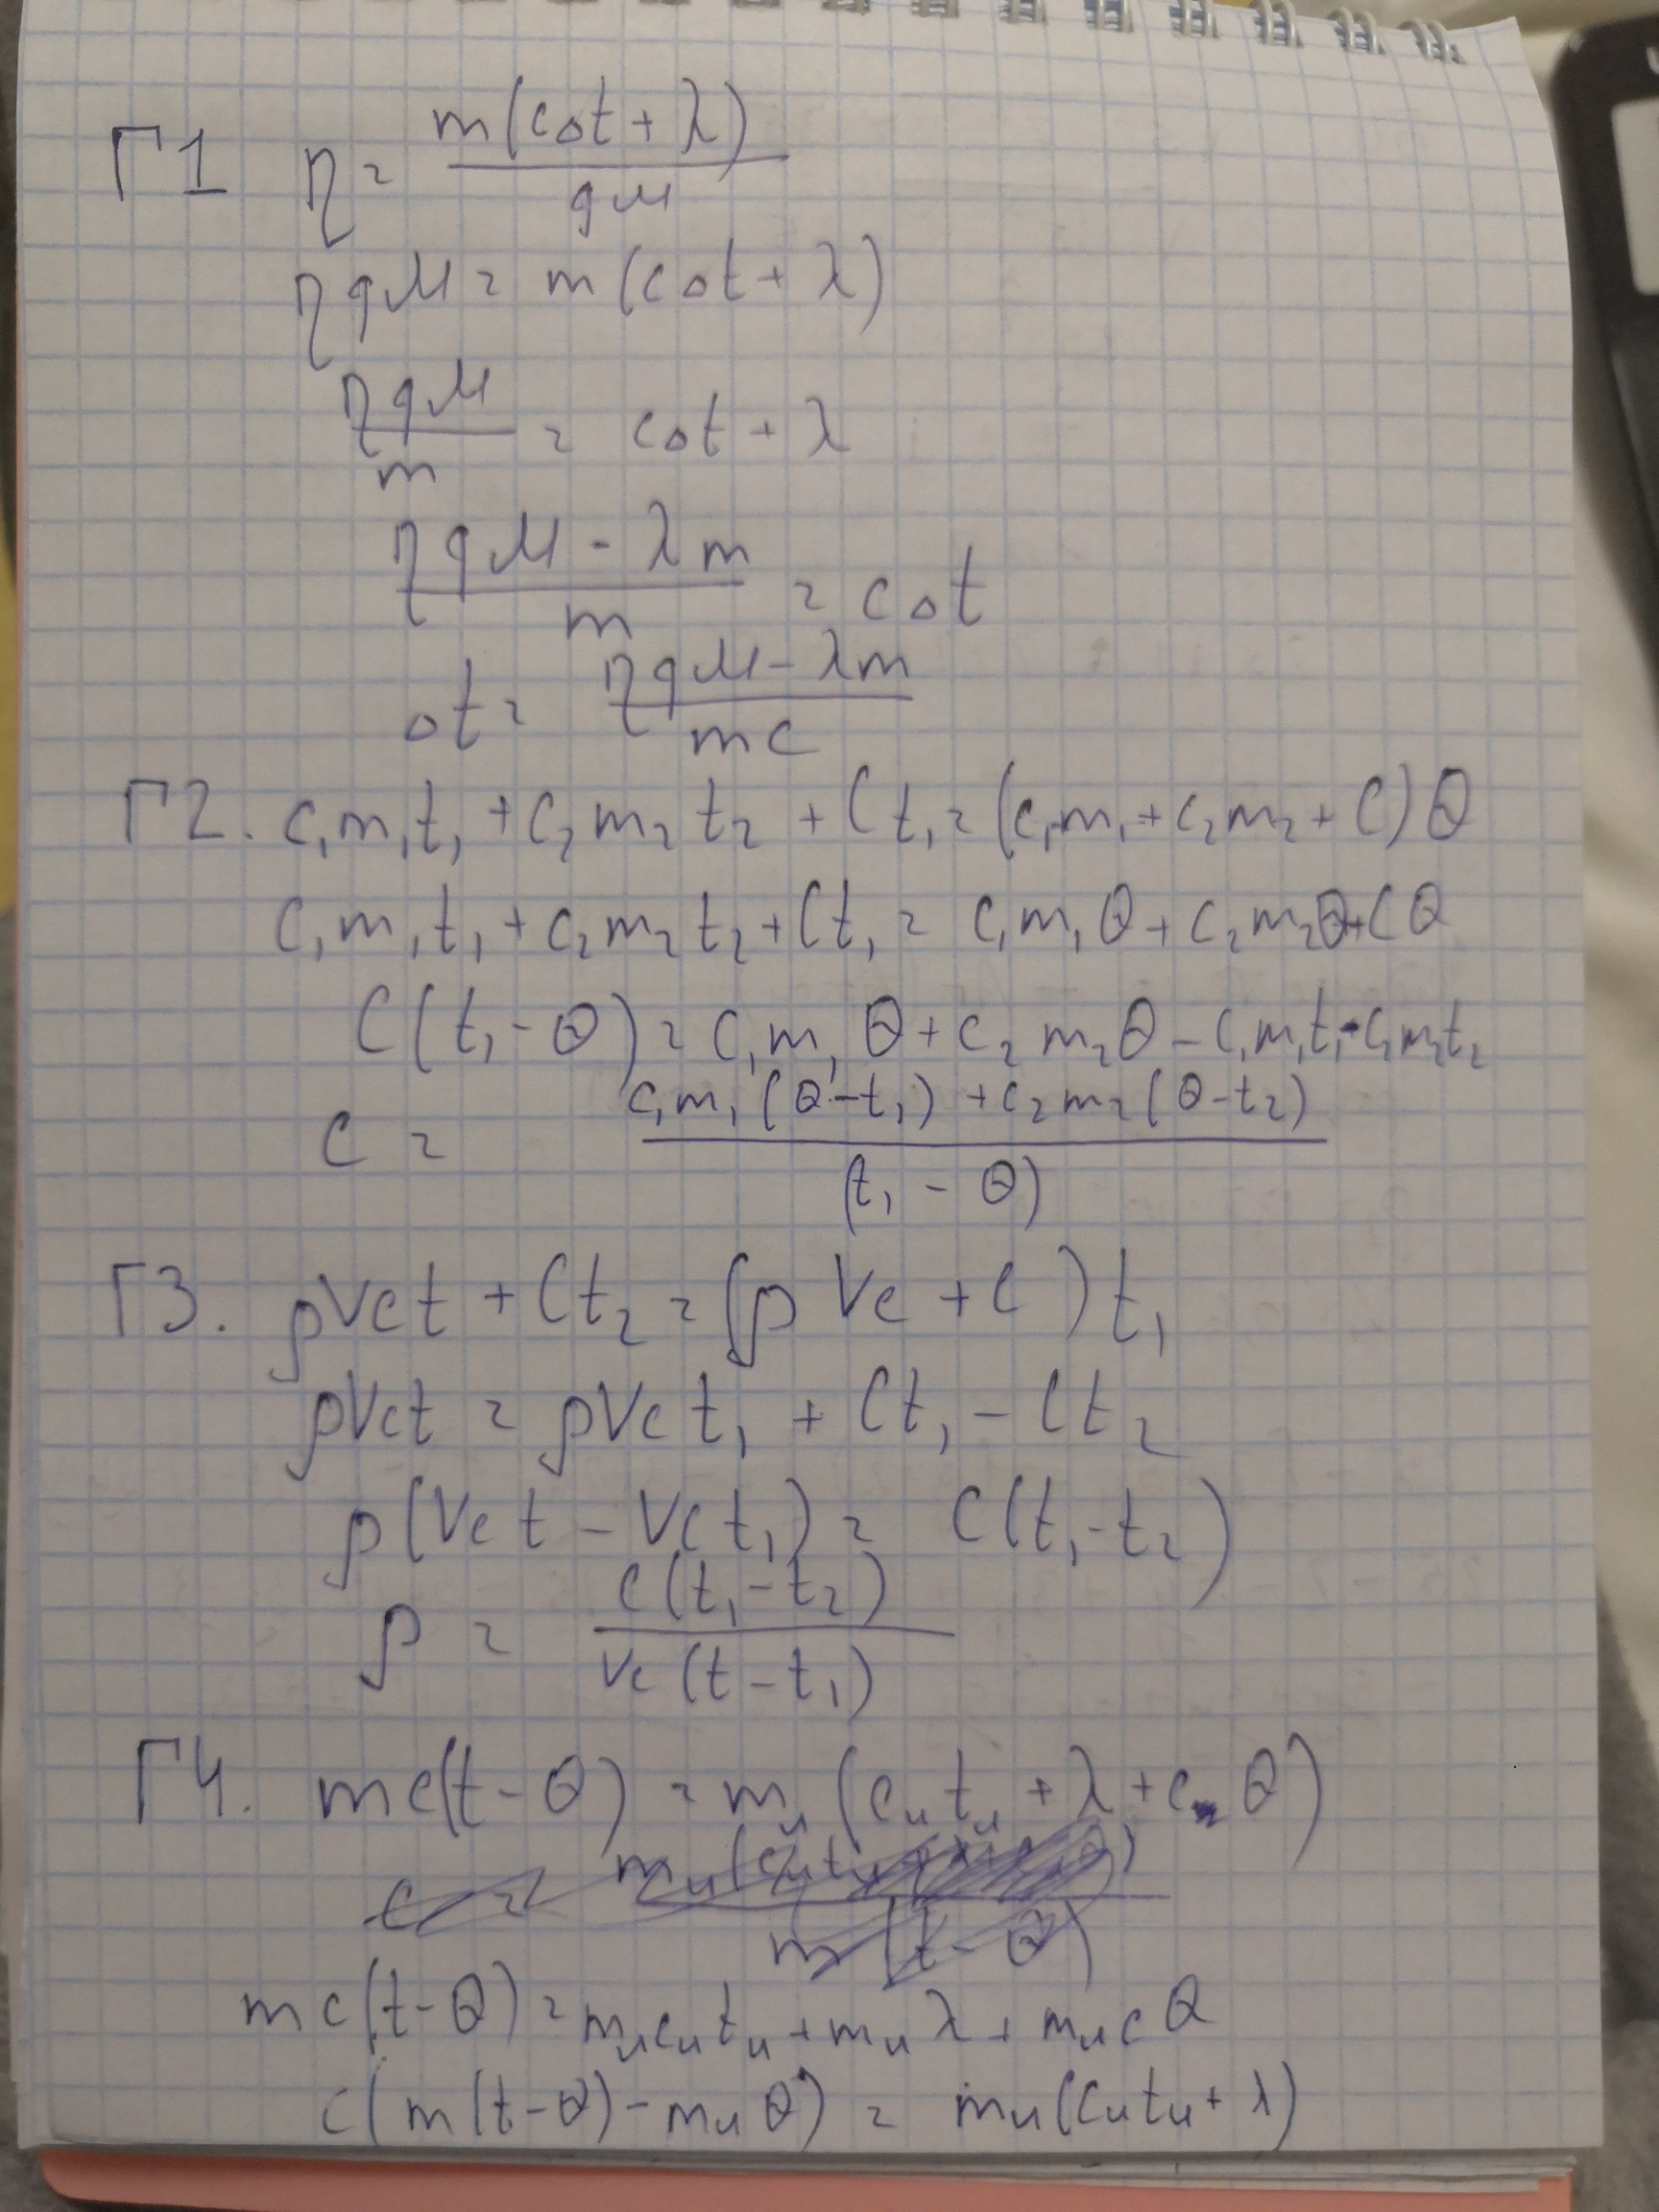 Г1 η = m(cΔt + λ) / qM
ηqM = m(cΔt + λ)
ηqM / m = cΔt + λ
ηqM - λm / m = cΔt
Δt = ηqM - λm / mc
Г2. c₁m₁t₁ + c₂m₂t₂ + Ct₁ = (c₁m₁ + c₂m₂ + C)θ
c₁m₁t₁ + c₂m₂t₂ + Ct₁ = c₁m₁θ + c₂m₂θ + Cθ
C(t₁ - θ) = c₁m₁θ + c₂m₂θ - c₁m₁t₁ - c₂m₂t₂
C = c₁m₁(θ - t₁) + c₂m₂(θ - t₂) / (t₁ - θ)
Г3. ρVct + Ct₂ = (ρVc + C)t₁
ρVct = ρVct₁ + Ct₁ - Ct₂
ρ(Vct - Vct₁) = C(t₁ - t₂)
ρ = C(t₁ - t₂) / Vc(t - t₁)
Г4. mc(t - θ) = mл(cлtл + λ + c θ)
mc(t - θ) = mлcлtл + mлλ + mлcθ
c(m(t - θ) - mлθ) = mл(cлtл + λ)